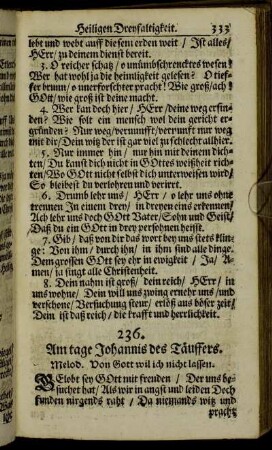 Heiligen Dreyfaltigkeit. 333
lebt und webt auff diesem erden weit / Ist alles/
HErr/ zu deinem dienst bereit.
3. O reicher schatz/ o unumbschrencktes wesen!
Wer hat wohl ja die heimligkeit gelesen? O tief-
fer brunn/ o unerforschter pracht! Wie groß/ach!
GOtt/ wie groß ist deine macht.
4. Wer kan doch hier/ HErr/ deine weg erfin-
den? Wie solt ein mensch wol dein gericht er-
gründen? Nur weg/vernunfft/verrunfft nur weg
mit dir/Dein witz der ist gar viel zu schlecht allhier.
5. Nur immer hin/ nur hin mit deinem dich-
ten/ Du kanst dich nicht in GOttes weißheit rich-
ten/Wo GOtt nicht selbst dich unterweisen wird/
So bleibest du verlohren und verirrt.
6. Drumb lehr uns/ HErr/ o lehr uns ohne
trennen In einem dren/ in dreyen eins erkennen/
Ach lehr uns doch GOtt Vater/Sohn und Geist/
Daß du ein GOtt in drey persohnen heisst.
7. Gib/ daß von dir das wort bey uns stets klin-
ge: Von ihm/ durch ihn/ in ihm sind alle dinge.
Dem grossen GOtt sey ehr in ewigkeit / Ja/ A-
men/ ja singt alle Christenheit.
8. Dein nahm ist groß/ dein reich/ HErr/ in
uns wohne/ Dein will uns zwing ernehr uns/und
verschone/ Versuchung steur/ erlöß aus böser zeit/
Dein ist daß reich/ die krafft und herrlichkeit.
236.
Am tage Johannis des Täuffers.
Melod. Von Gott wil ich nicht lassen.
GElobt sey GOtt mit freuden / Der uns be-
suchet hat/ Als wir in angst und leiden Doch
funden nirgends raht/ Da niemands witz und
pracht